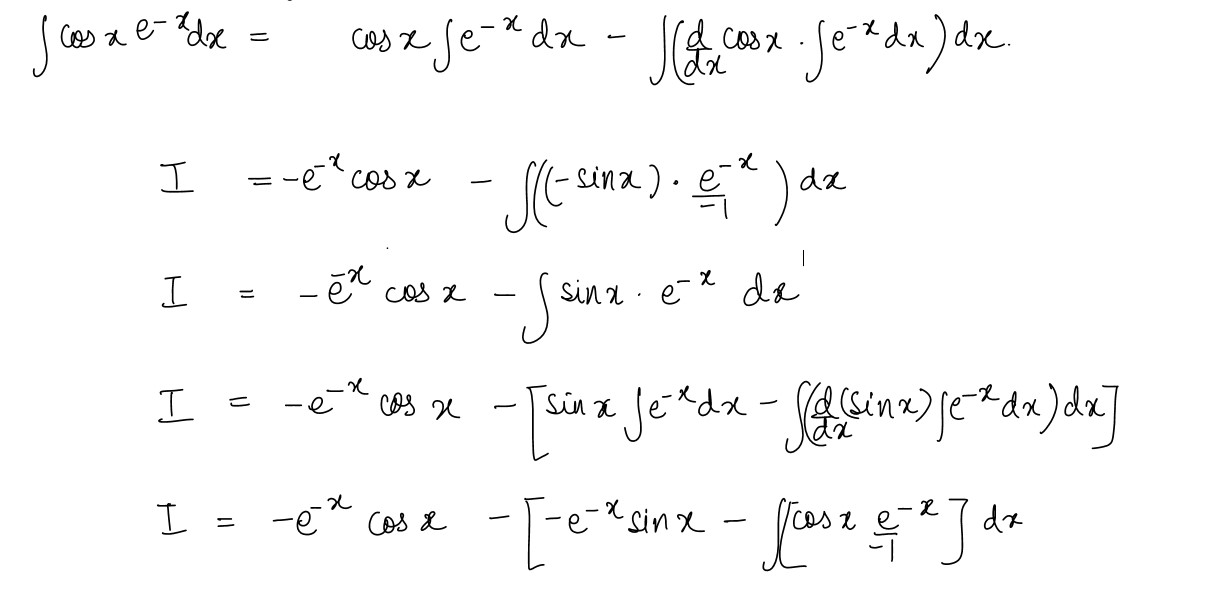 ∫ cos x e^{-x} dx = cos x ∫ e^{-x} dx - ∫ (d/dx cos x · ∫ e^{-x} dx) dx.
I = -e^{-x} cos x - ∫ ((-sin x) · e^{-x}/-1) dx
I = -e^{-x} cos x - ∫ sin x · e^{-x} dx
I = -e^{-x} cos x - [sin x ∫ e^{-x} dx - ∫ (d/dx (sin x) ∫ e^{-x} dx) dx]
I = -e^{-x} cos x - [-e^{-x} sin x - ∫ [cos x e^{-x}/-1] dx